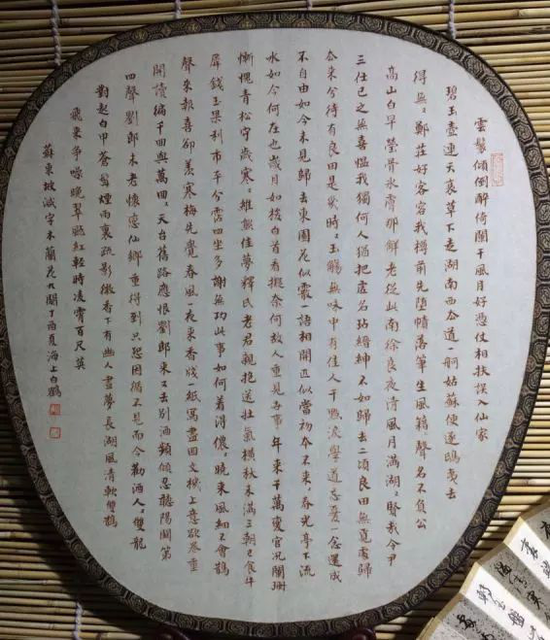 雲鬟傾倒醉倚闌干風月好憑仗相扶誤入仙家
碧玉壺連天衰草下走湖南西去道一舸姑蘇便逐鴟夷去
得無鄭莊好客容我樽前先墮幘落筆生風籍聲名不負公
高山白早瑩骨冰膚那解老從此南徐良夜清風月滿湖賢哉令尹
三仕已之無喜慍我獨何人猶把虛名玷縉紳不如歸去二頃良田無覓處歸
去來兮待有良田是幾時玉觴無味中有佳人千點淚學道忘憂一念還成
不自由如今未見歸去東園花似霰一語相開匹似當初本不來春光亭下流
水如今何在也歲月如梭白首看擬奈何故人重見事年來千萬變官況闌珊
慚愧青松守歲寒維熊佳夢釋氏老君親抱送壯氣橫秋未滿三朝已食牛
犀錢玉果利市平分霑四坐多謝無功此事如何着得儂曉來風細不會鵲
聲來報喜卻羨寒梅先覺春風一夜來香牋一紙寫盡回文機上意欲卷重
開讀徧千回與萬回天台舊路應恨劉郎來又去別酒頻傾忍聽陽關第
四聲劉郎未老懷戀仙鄉重得到只恐因循不見而今勸酒人雙龍
對起白甲蒼髯煙雨裏疏影微香下有幽人晝夢長湖風清軟雙鵲
飛來爭噪晚翠颭紅輕時凌霄百尺英
蘇東坡減字木蘭花九闋丁酉夏海上白鶴